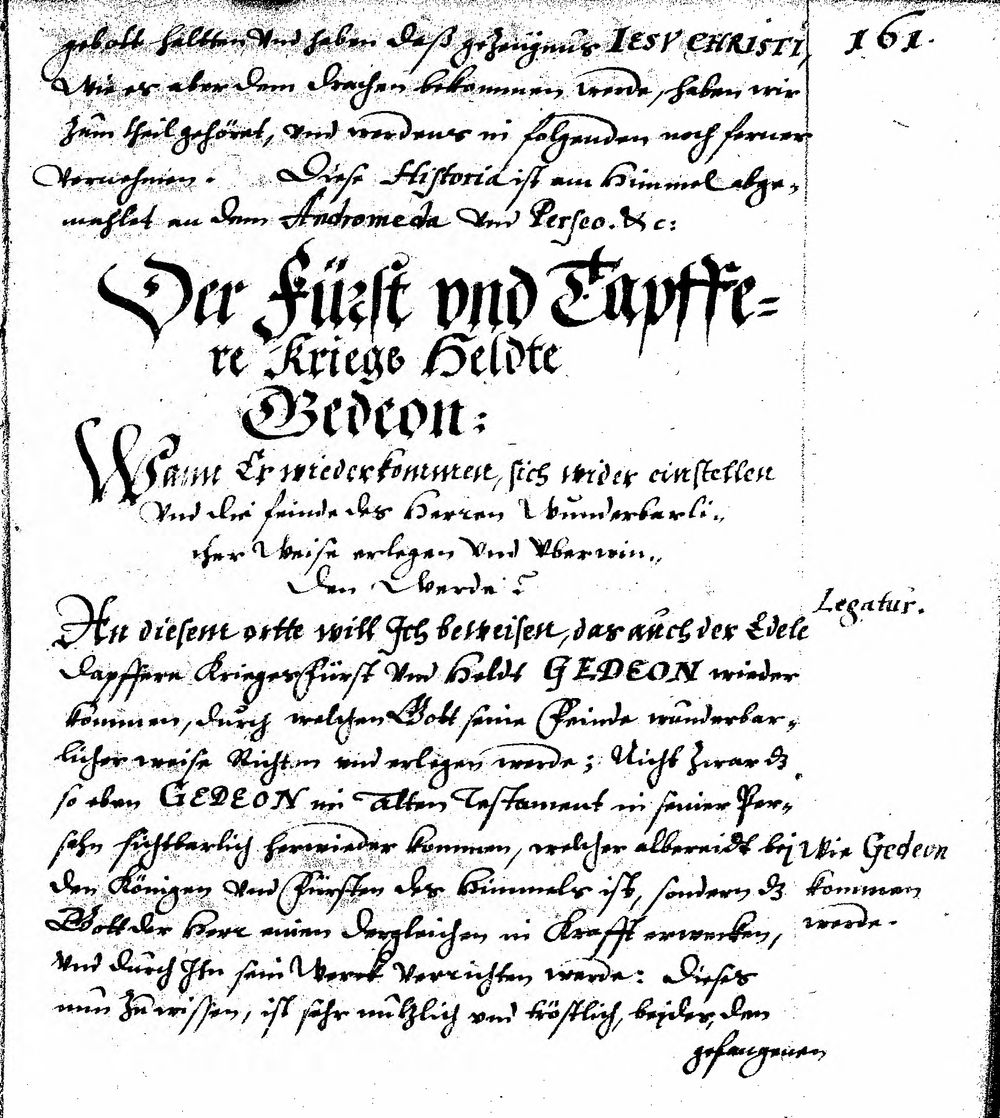 161.
gebott haltten Vnd haben daß gezeügnus IESV CHRISTI,
Wie es aber dem drachen bekommen werde, haben wir
zum theil gehöret, vnd werdens in folgenden noch ferner
Vernehmen. Diese Historia ist am Himmel abge-
mahlet an dem Andromeda Vnd Perseo. &c:
Der Fürst vnd Tapffe=
re Kriegs Heldte
Gedeon:
Wann Er wiederkommen, sich wider einstellen
Vnd die feinde des Herren Wunderbarli-
cher Weise erlegen Vnd Vberwin-
den Werde?
Legatur.
An diesem ortte will Ich beweisen, das auch der Edele
dapffere KriegesFürst Vnd Heldt GEDEON wieder
kommen, durch welchen Gott seine Feinde wunderbar-
licher weise Richten vnd erlegen werde; Nicht zwar dz
so eben GEDEON im Alten Testament in seiner Per-
sohn sichtbarlich herwieder kommen, welcher albereidt bej
den Königen Vnd Fürsten des Himmels ist, sondern dz
Gott der Herr einen dergleichen in Krafft erwecken,
Vnd durch Ihn sein Werck Verrichten werde: Dieses
nun zu wissen, ist sehr nützlich vnd tröstlich, beyder, den
gefangenen
Wie Gedeon
kommen
werde.